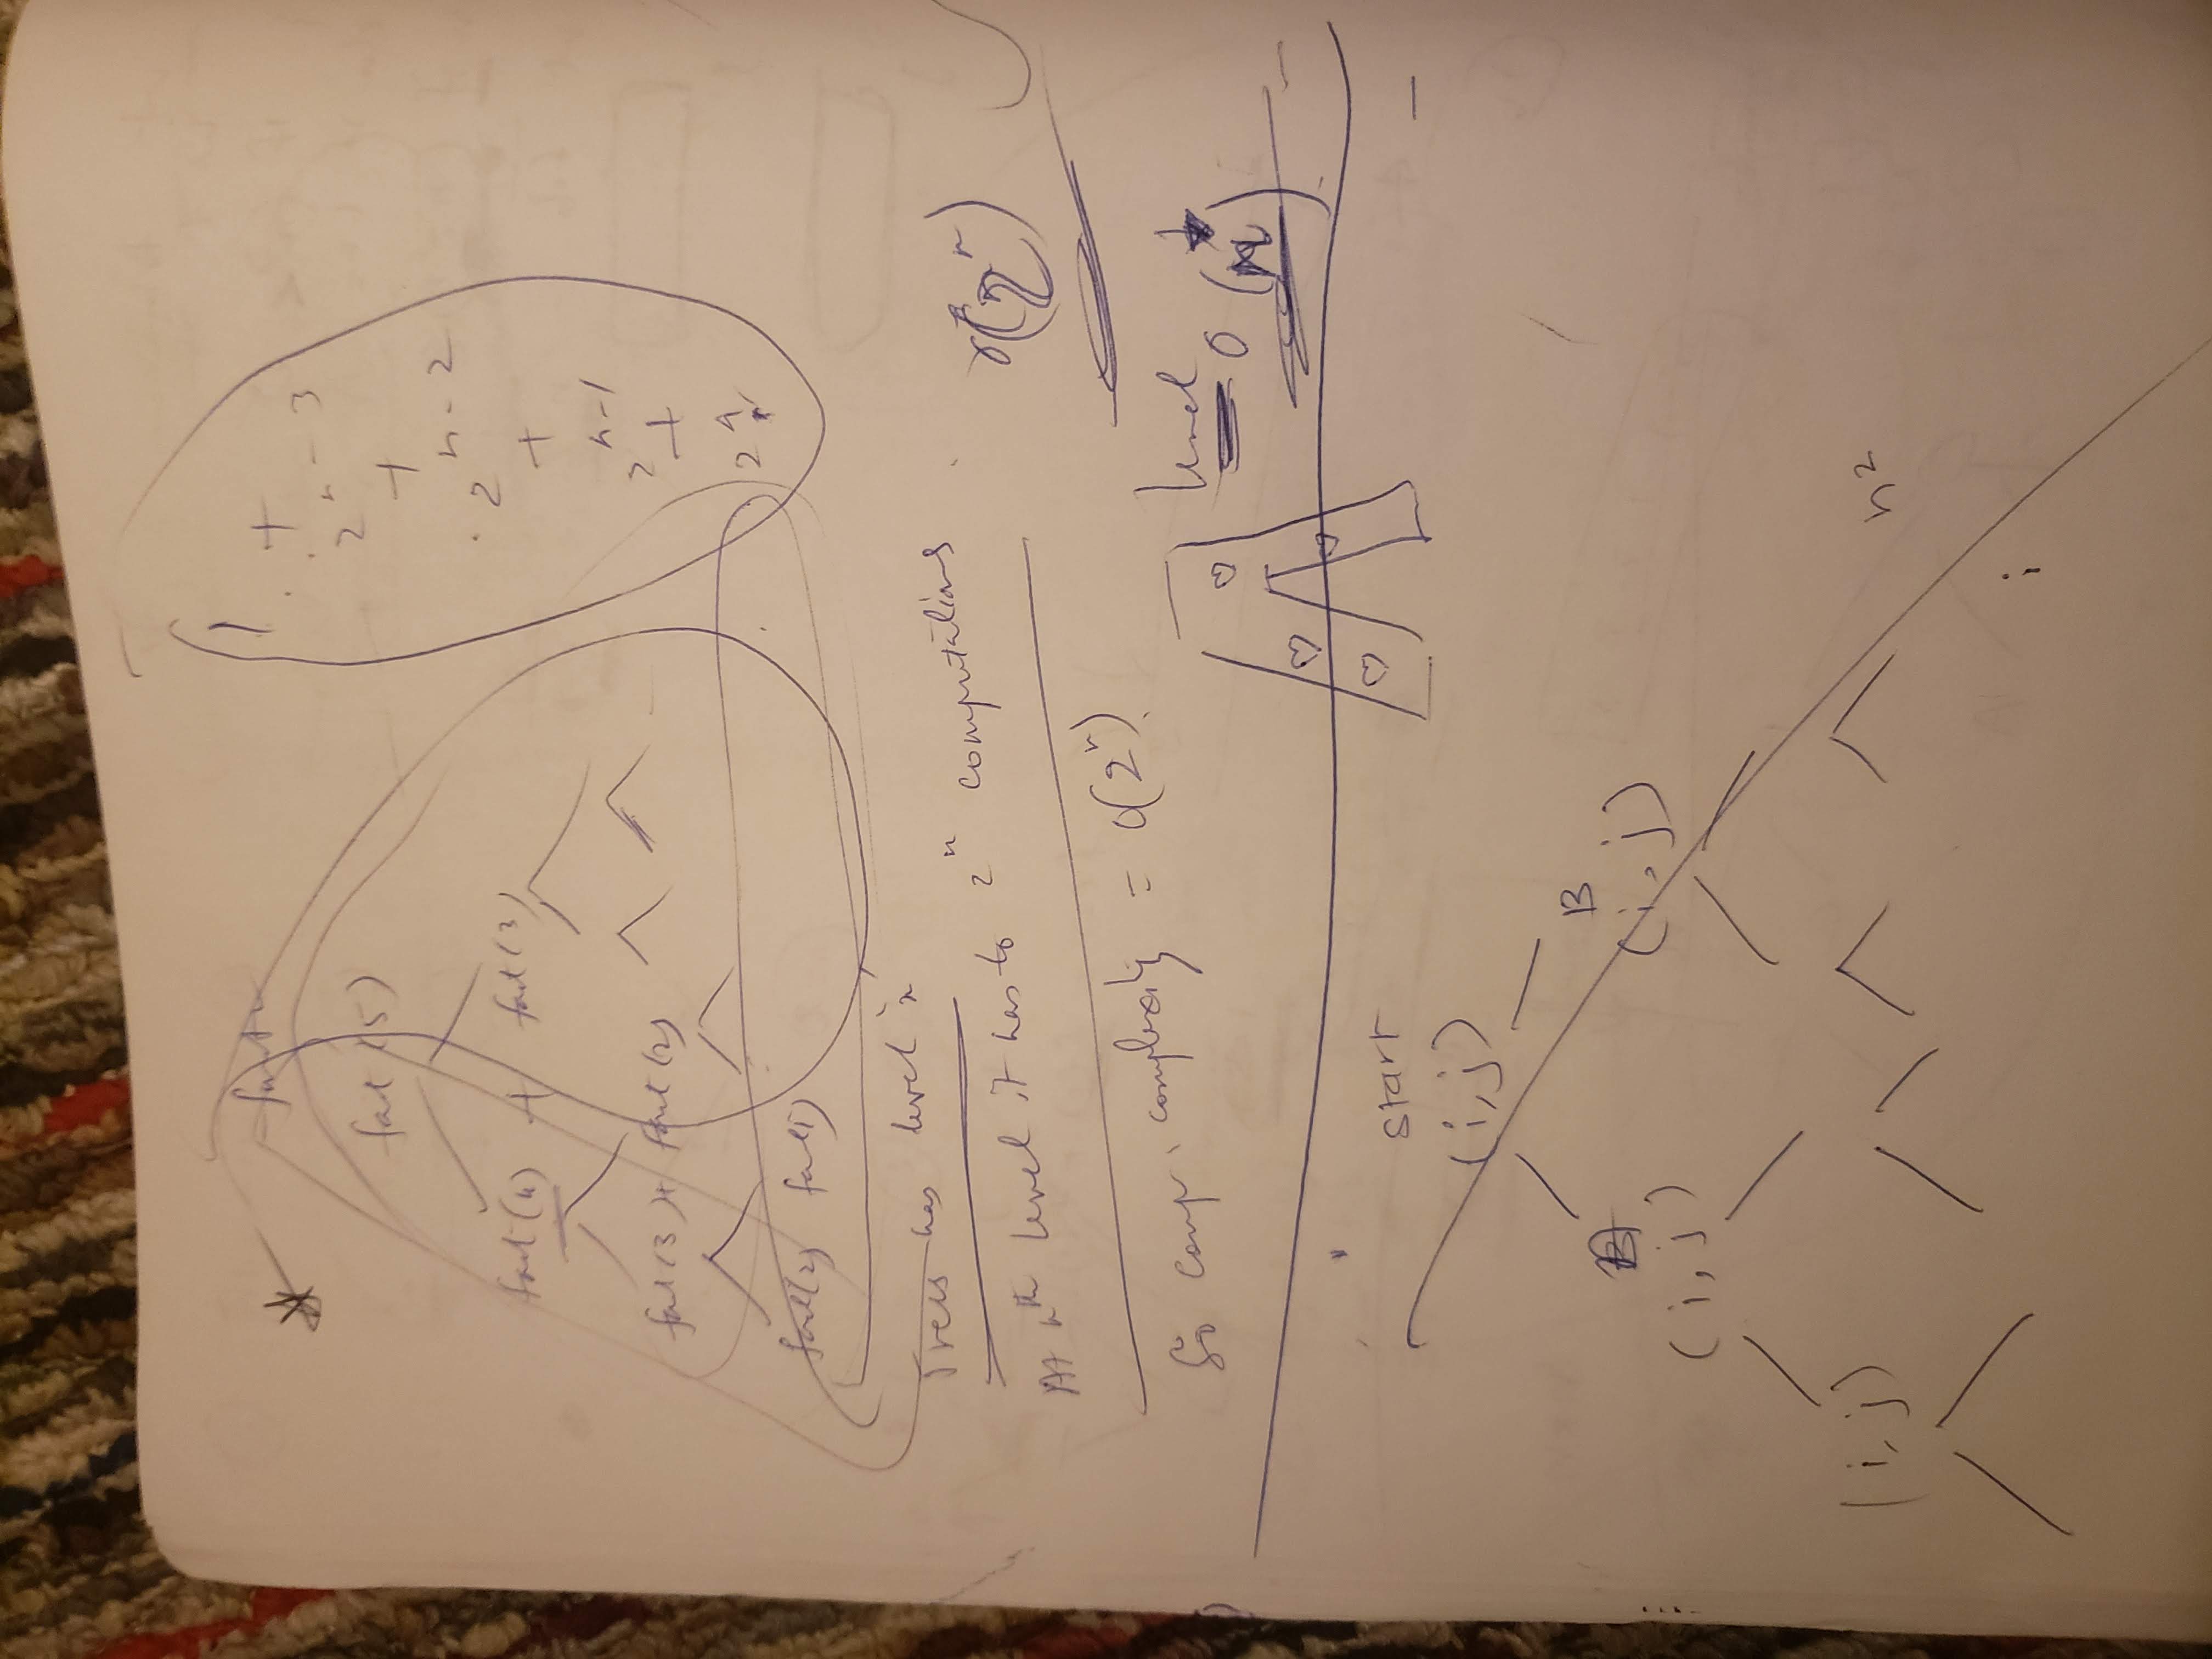 fact(5)
fact(4) + fact(3)
fact(3) + fact(2)
fact(2) fact(1)
1
+
2^n-3
+
2^n-2
+
2^n-1
+
2^n
Trees has level 'n'
At nth level it has to 2^n computations
O(2^n)
So comp. complexity = O(2^n).
level
O(N)
start
(i,j)
B
(i,j)
(i,j)
(i,j)
n²
i